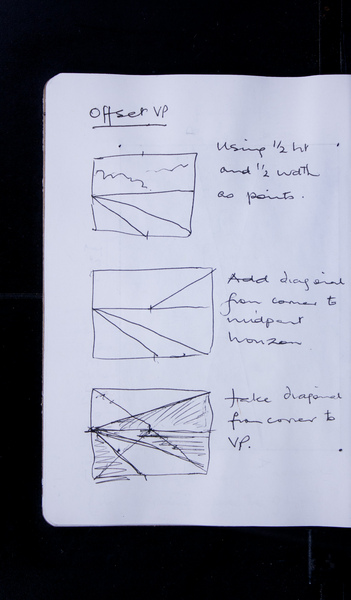 Offset VP
Using 1/2 ht
and 1/2 width
as points.
Add diagonal
from corner to
midpoint
horizon
take diagonal
from corner to
VP.